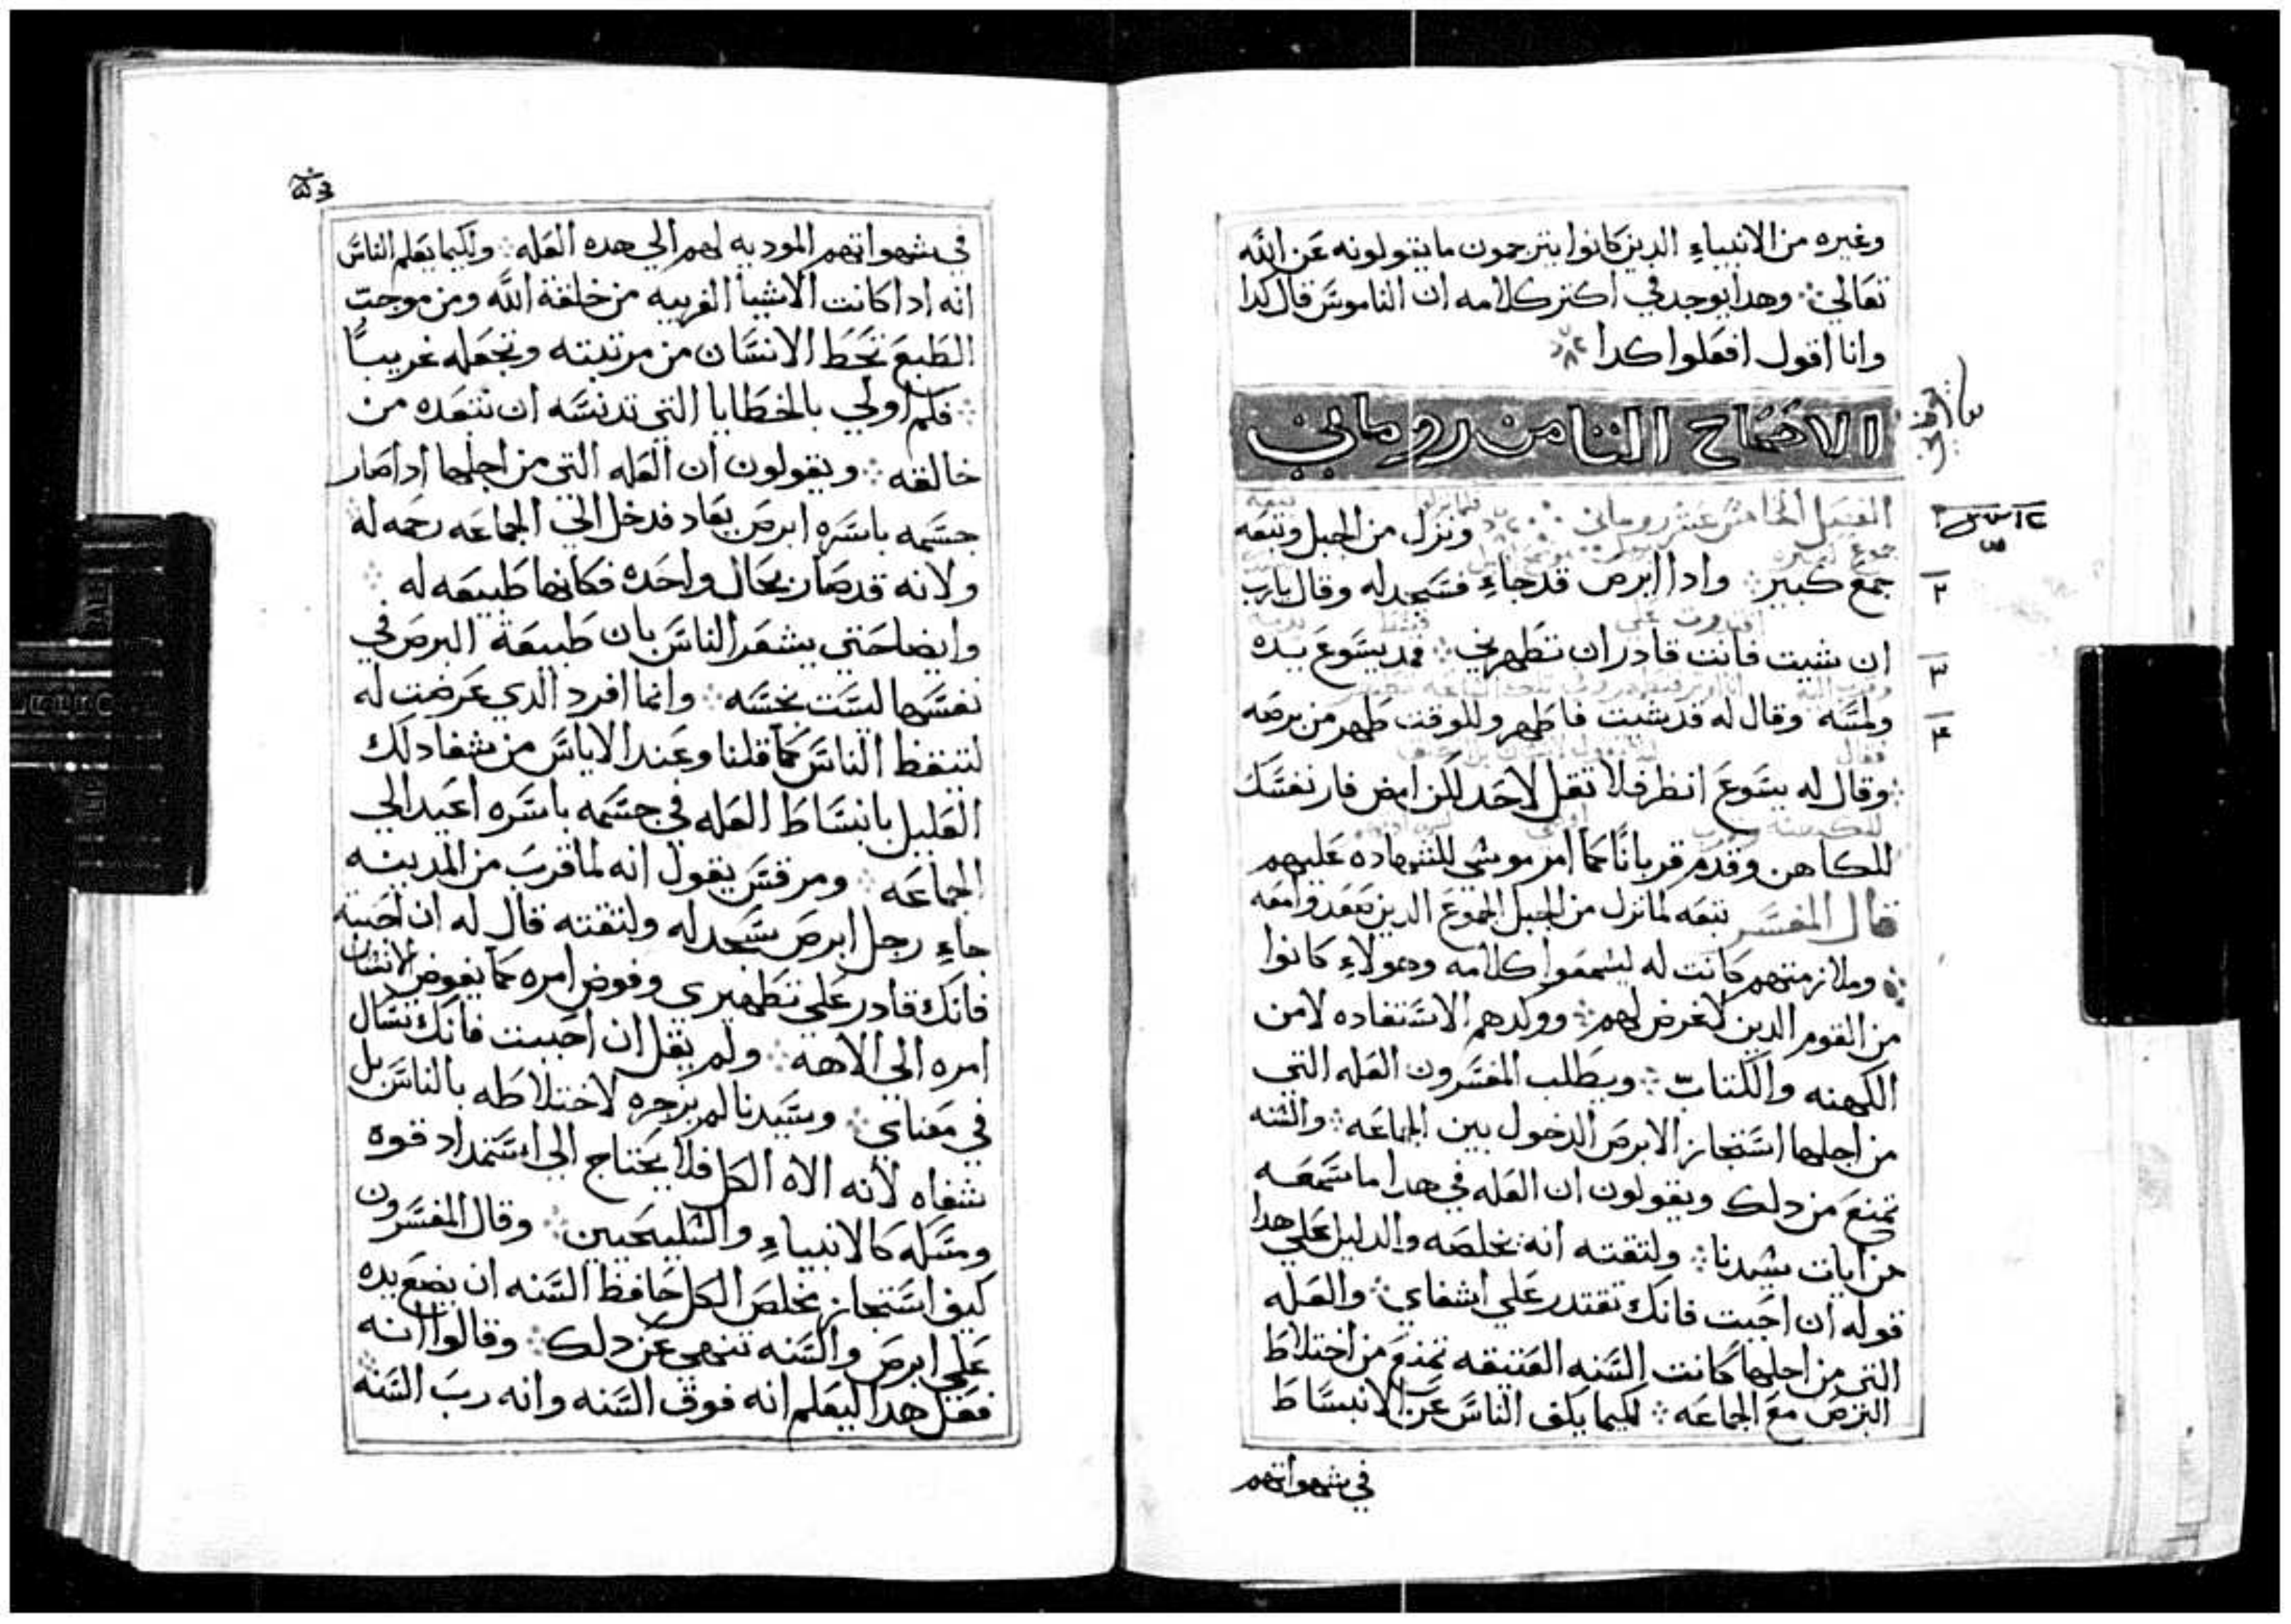 وغيره من الانبياء الدين كانوا يترجمون ما يتقولونه عن الله
تعالي ⁘ وهدا يوجد في اكتر كلامه ان الناموس قال كدا
وانا اقول افعلوا كدا ⁘
الاصحاح التامن روماني
الفصل الخامس عشر روماني ⁘ ونزل من الجبل وتبعه
جمع كبير ⁘ وادا ابرص قد جاء فسجد له وقال يارب
٢
ان شيت فانت قادر ان تطهرني ⁘ فمد يسوع يده
٣
ولمسه وقال له قد شيت فاطهر وللوقت طهر من برصه
٤
⁘ وقال له يسوع انظر فلا تقل لاحد لكن امض فار نفسك
للكاهن وقدم قربانًا كما امر موسي للشهاده عليهم
قال المفسر تبعه لما نزل من الجبل الجموع الدين صعدوا معه
⁘ وملازمتهم كانت له ليسمعوا كلامه وهولاء كانوا
من القوم الدين لا غرض لهم ⁘ ووكدهم الاستفاده لا من
الكهنه والكتاب ⁘ ويطلب المفسرون العله التي
من اجلها استجاز الابرص الدخول بين الجماعه ⁘ والسنه
تمنع من دلك ويقولون ان العله في هدا ما سمعه
من ايات سيدنا ⁘ ولتقته انه يخلصه والدليل علي هدا
قوله ان احبت فانك تقتدر علي اشفاي ⁘ والعله
التي من اجلها كانت السنه العتيقه تمنع من اختلاط
البرص مع الجماعه ⁘ لكيما يكف الناس عن الانبساط
في شهواتهم
في شهواتهم الموديه لهم الي هده العله ⁘ ولكيما يعلم الناس
انه ادا كانت الاشيا الغريبه من خلقة الله ومن موجب
الطبع تحط الانسان من مرتبته وتجعله غريبًا
⁘ فكم اولي بالخطايا التي تدنسه ان تبعده من
خالقه ⁘ ويقولون ان العله التي من اجلها ادا صار
جسمه باسره ابرص يعاد فدخل الي الجماعه رحمه له
ولانه قد صار بحال واحده فكانها طبيعه له ⁘
وايضا حتي يشعر الناس بان طبيعة البرص في
نفسها ليست نجسه ⁘ وانما افرد الدي عرضت له
لتتغظ الناس كما قلنا وعند الاياس من شفا دلك
العليل بانبساط العله في جسمه باسره اعيد الي
الجماعه ⁘ ومرقس يقول انه لما قرب من المدينه
جاء رجل ابرص سجد له ولتقته قال له ان احببت
فانك قادر علي تطهيري وفوض امره كما يفوض الانسان
امره الي الاهه ⁘ ولم يقل ان احببت فانك تسال
في معناي ⁘ وسيدنا لم يزجره لاختلاطه بالناس بل
شفاه لانه الاه الكل فلا يحتاج الي استمداد قوه
ومسله كالانبياء والسليحيين ⁘ وقال المفسرون
كيف استجاز مخلص الكل حافظ السنه ان يضع يده
علي ابرص والسنه تنهي عن دلك ⁘ وقالوا انه
فعل هدا ليعلم انه فوق السنه وانه رب السنه ⁘